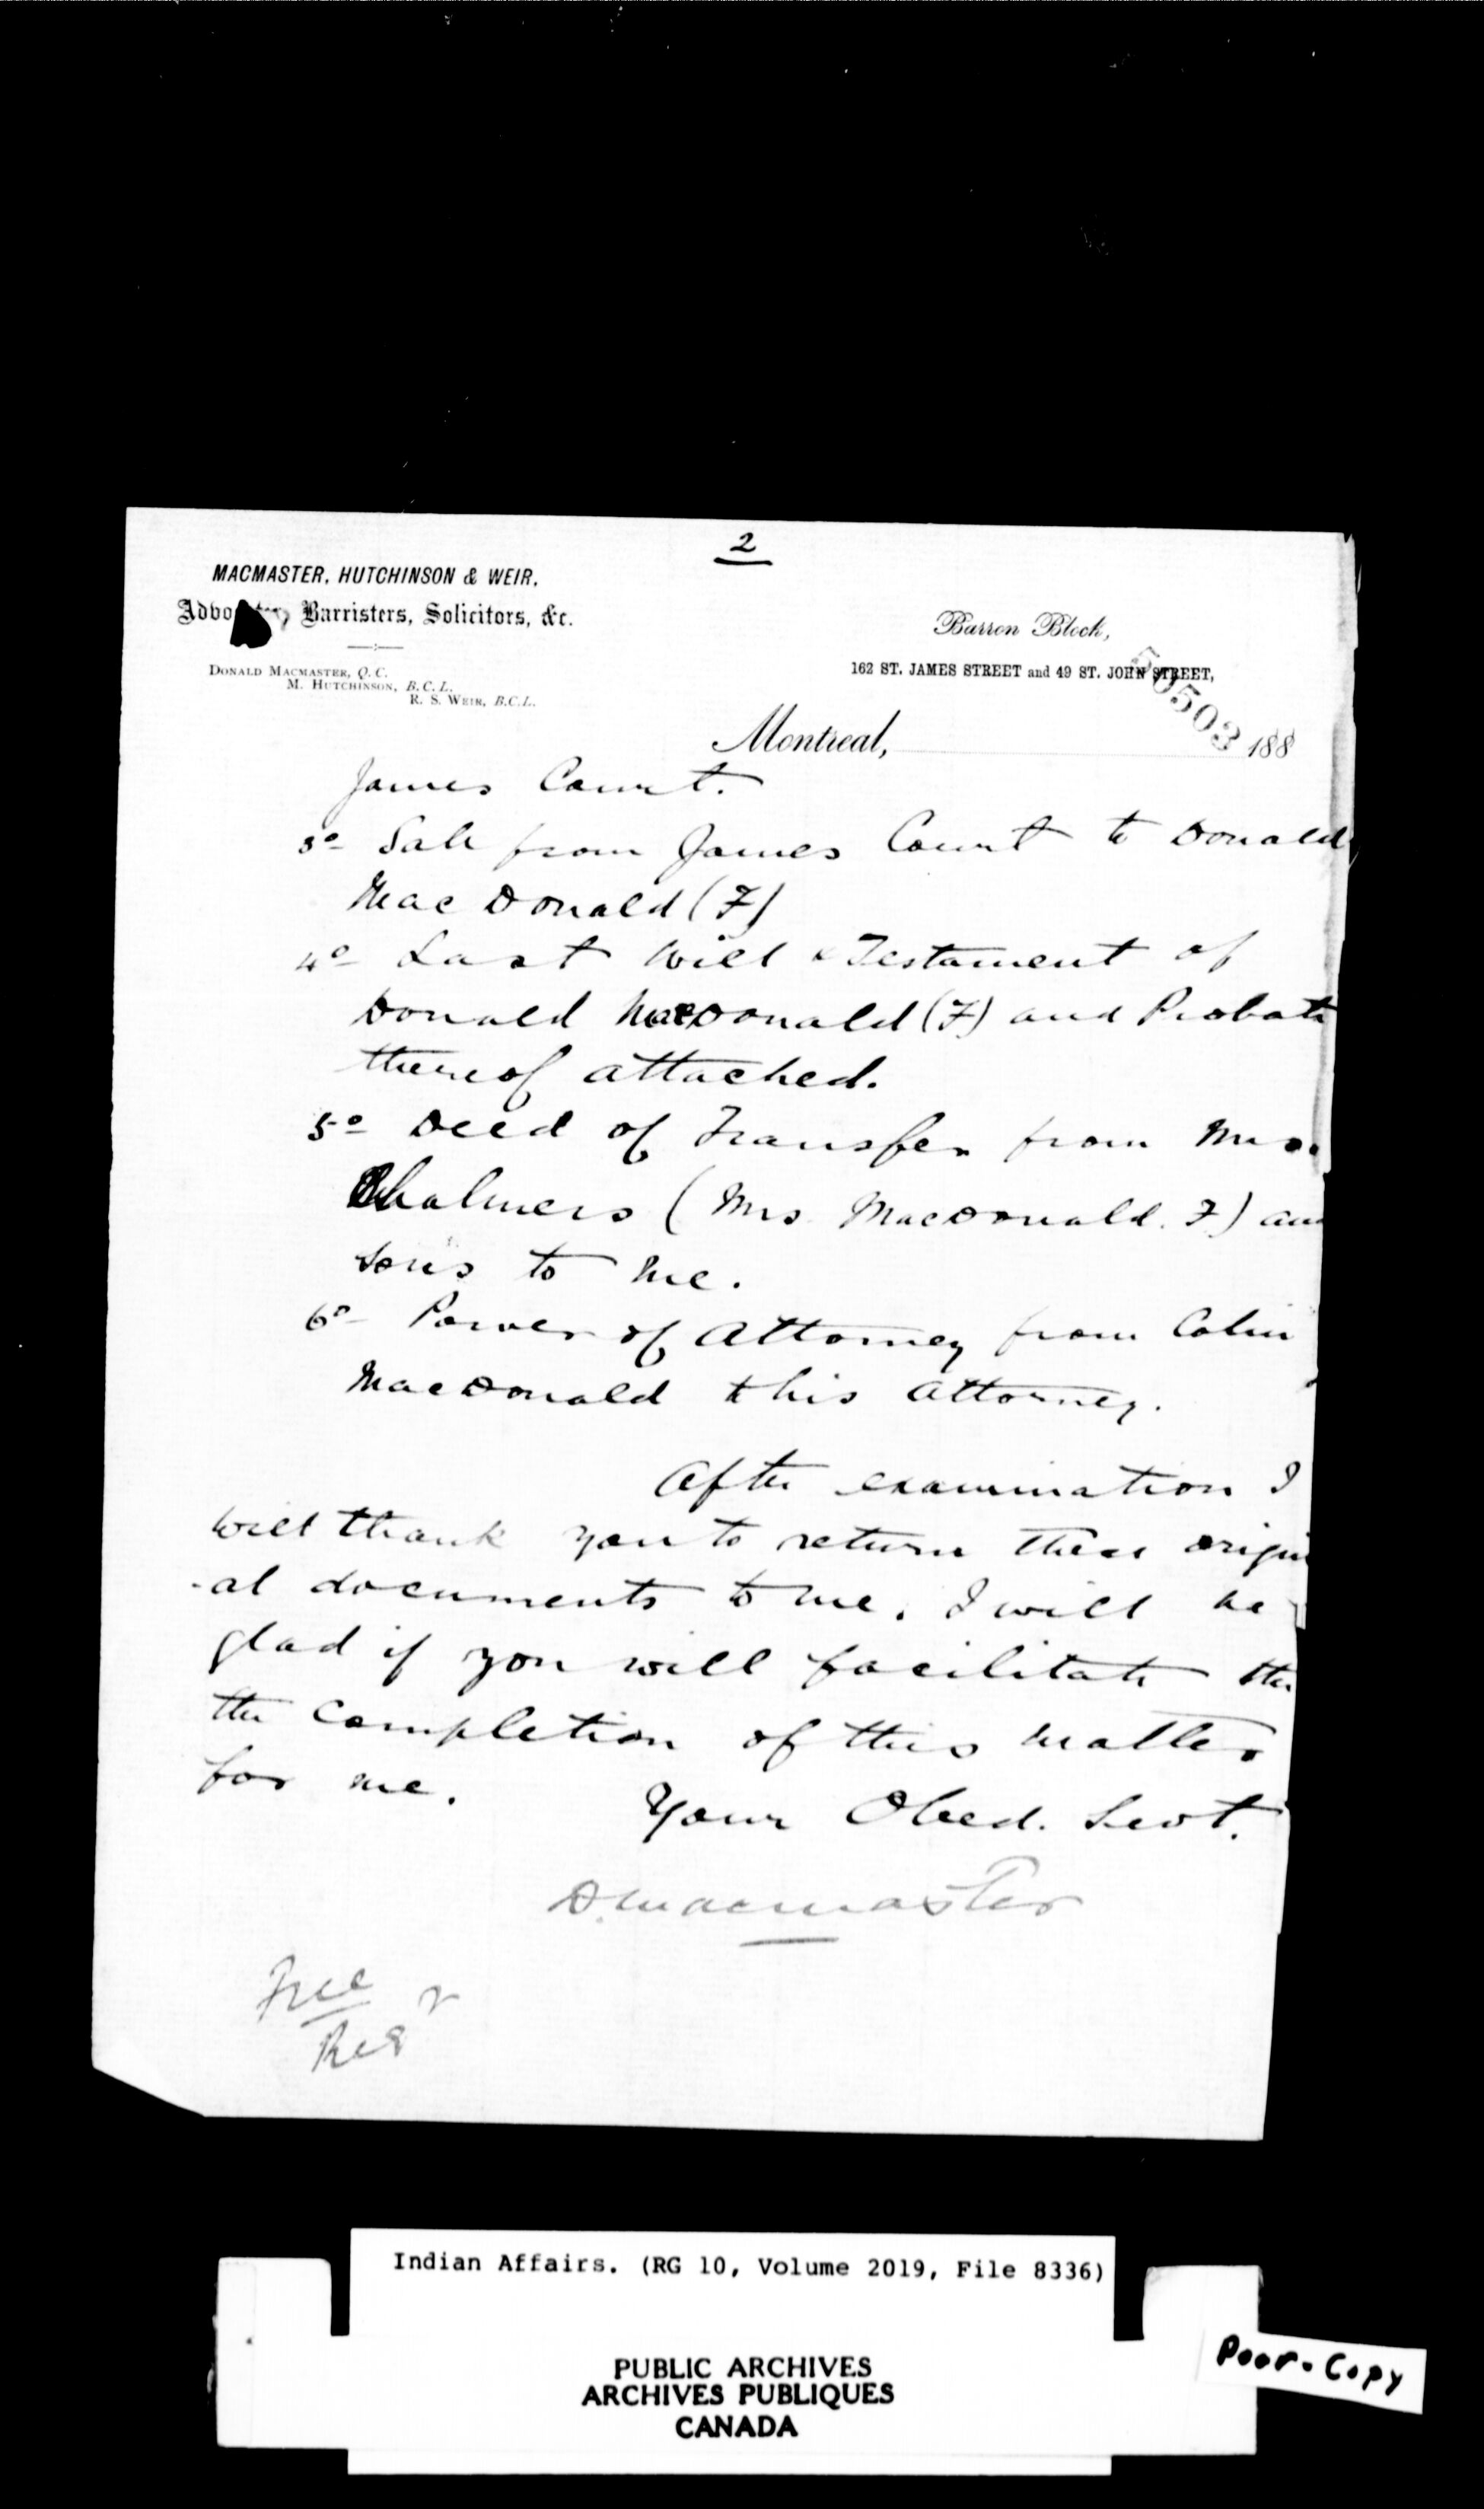 2
MACMASTER, HUTCHINSON & WEIR.
Advocates, Barristers, Solicitors, &c.
DONALD MACMASTER, Q.C.
M. HUTCHINSON, B.C.L.
R. S. WEIR, B.C.L.
Barron Block,
162 ST. JAMES STREET and 49 ST. JOHN STREET,
50503
Montreal, 188
James Court.
3o Sale from James Court to Donald
MacDonald (F)
4o Last Will & Testament of
Donald MacDonald (F) and Probate
thereof attached.
5o Deed of Transfer from Mrs.
Chalmers (Mrs MacDonald. F) an
sons to me.
6o Power of Attorney from Colin
MacDonald t his Attorney.
After examination I
will thank you to return these origin
-al documents to me. I will be
glad if you will facilitate the
the completion of this matter
for me.
Your Obed. Servt.
D. Macmaster
Indian Affairs. (RG 10, Volume 2019, File 8336)
PUBLIC ARCHIVES
ARCHIVES PUBLIQUES
CANADA
Poor-Copy